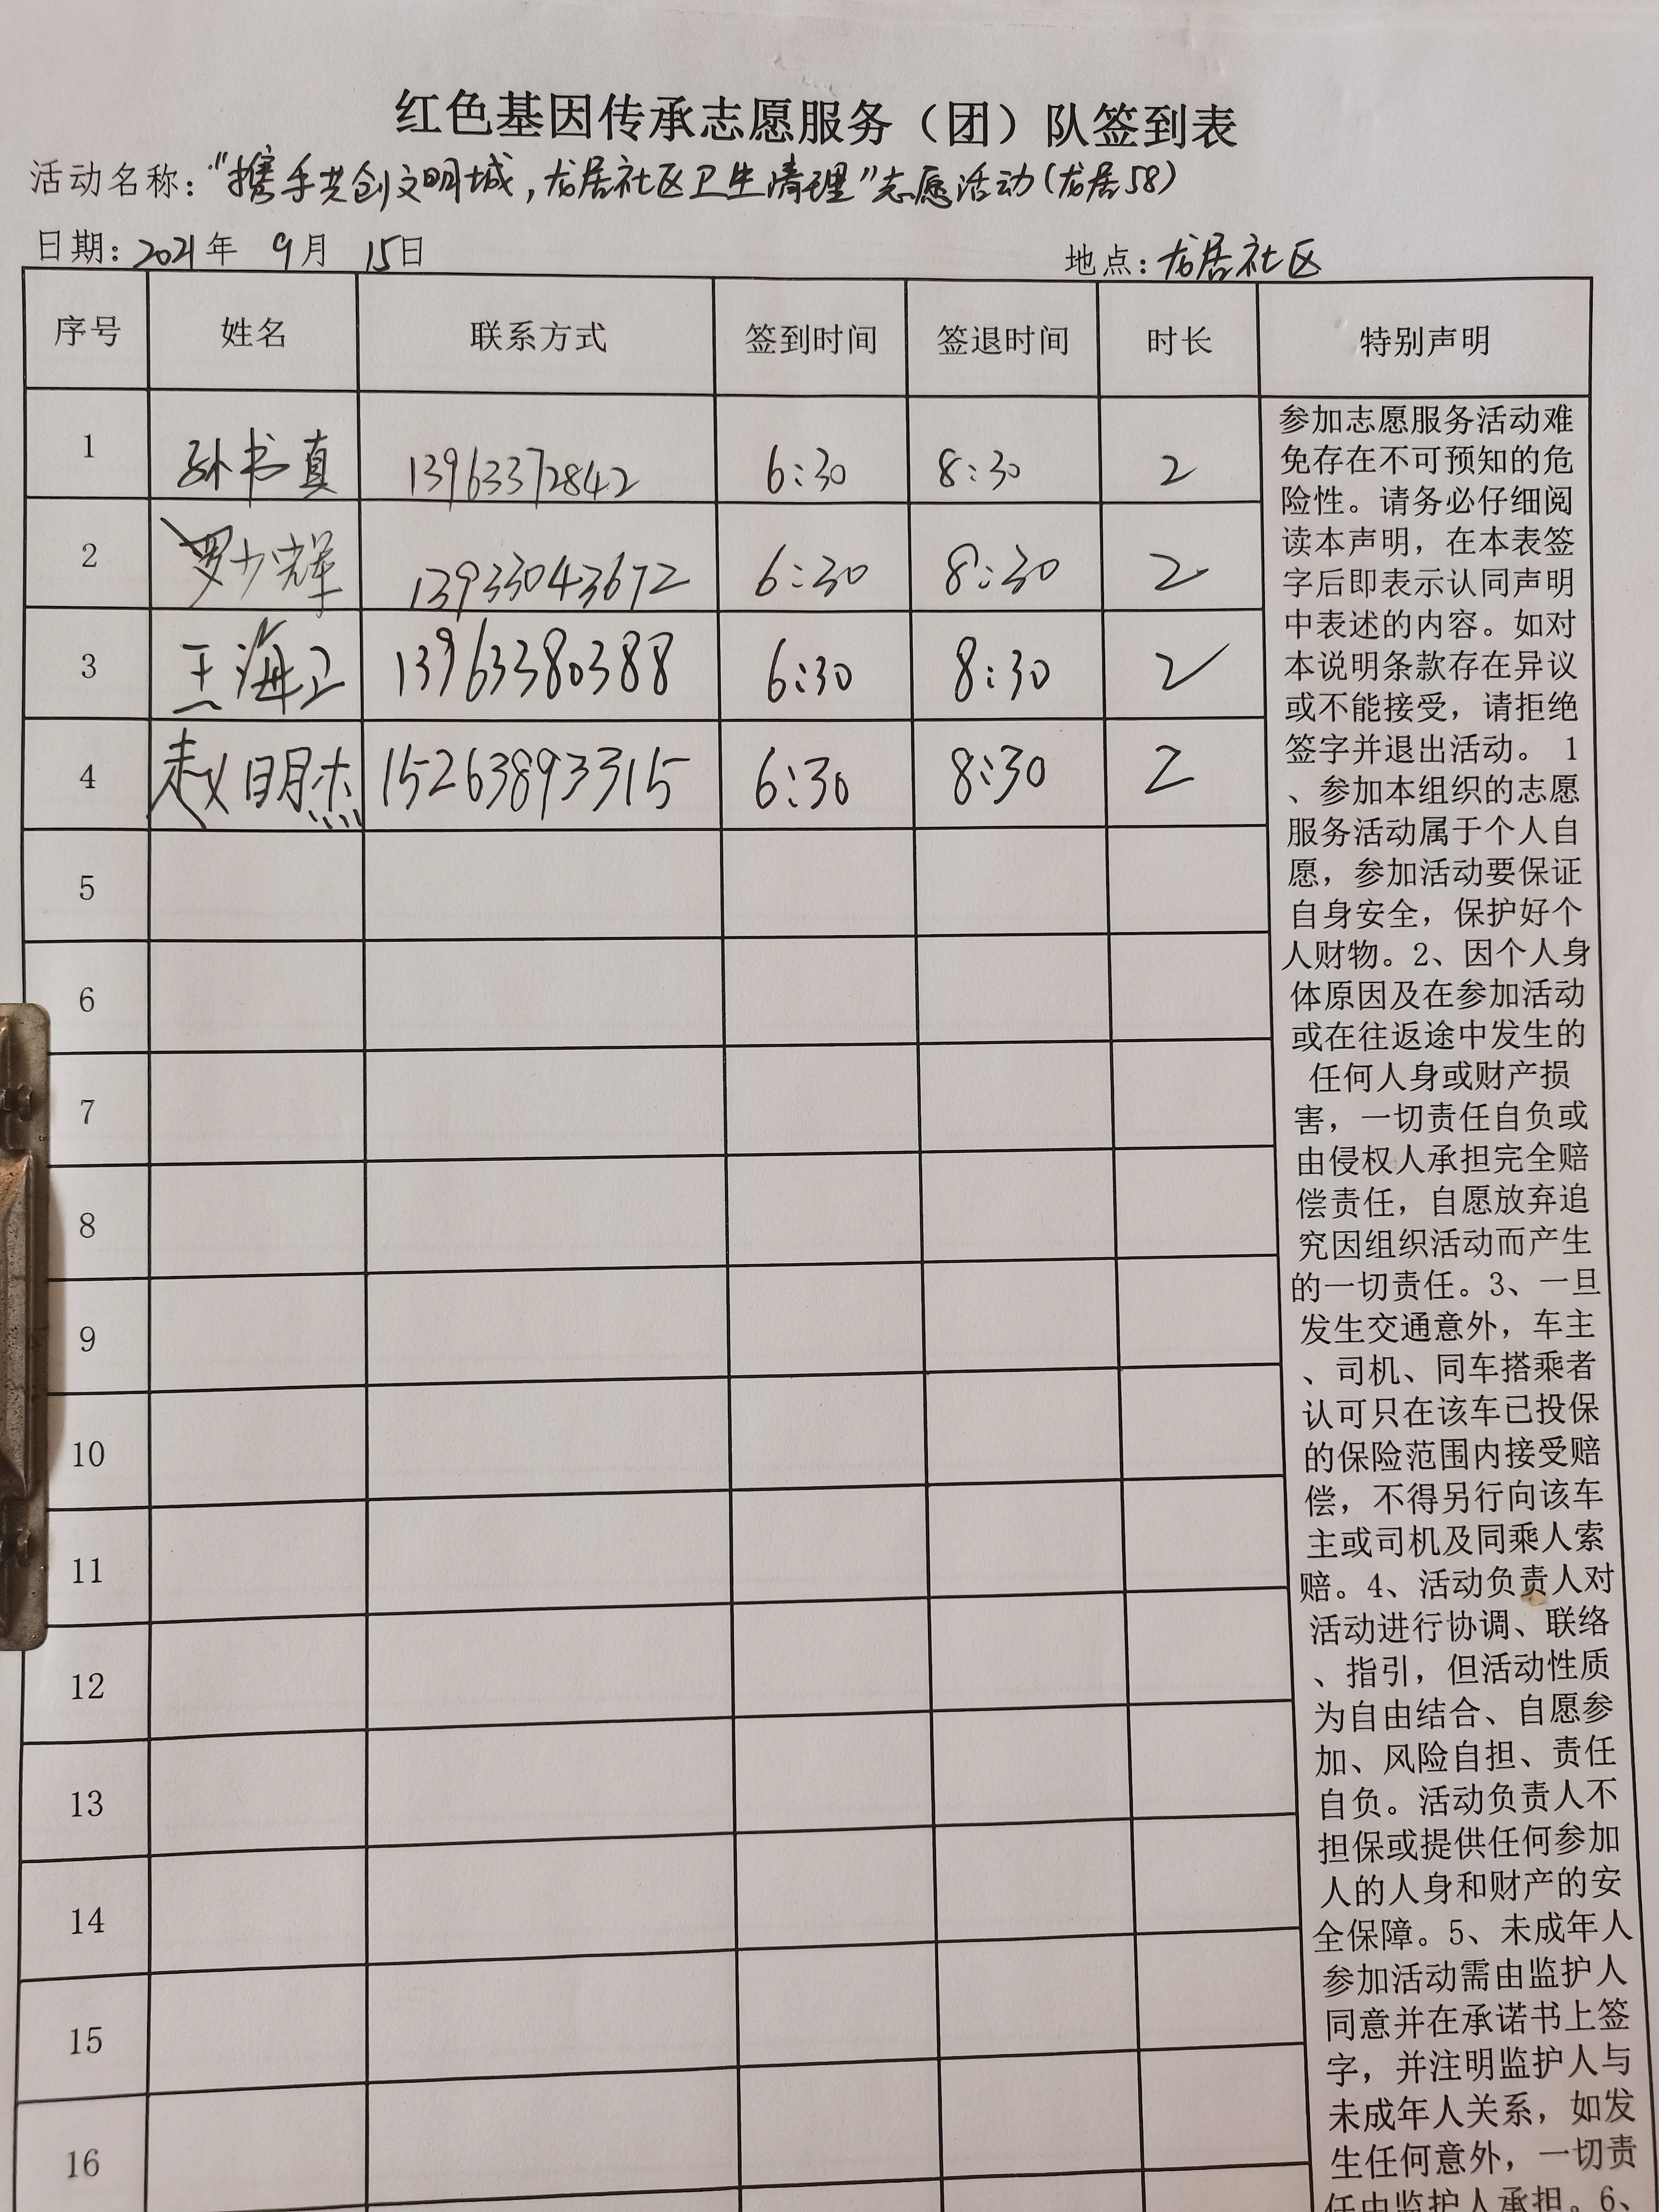 红色基因传承志愿服务（团）队签到表
活动名称："携手共创文明城，龙居社区卫生清理"志愿活动（龙居58）
日期：2021年 9月 15日 地点：龙居社区
序号 姓名 联系方式 签到时间 签退时间 时长 特别声明
1 孙书真 13963372842 6:30 8:30 2
2 罗少辉 13933043672 6:30 8:30 2
3 王海卫 13963380388 6:30 8:30 2
4 赵明杰 15263893315 6:30 8:30 2
5
6
7
8
9
10
11
12
13
14
15
16
参加志愿服务活动难
免存在不可预知的危
险性。请务必仔细阅
读本声明，在本表签
字后即表示认同声明
中表述的内容。如对
本说明条款存在异议
或不能接受，请拒绝
签字并退出活动。 1
、参加本组织的志愿
服务活动属于个人自
愿，参加活动要保证
自身安全，保护好个
人财物。2、因个人身
体原因及在参加活动
或在往返途中发生的
任何人身或财产损
害，一切责任自负或
由侵权人承担完全赔
偿责任，自愿放弃追
究因组织活动而产生
的一切责任。3、一旦
发生交通意外，车主
、司机、同车搭乘者
认可只在该车已投保
的保险范围内接受赔
偿，不得另行向该车
主或司机及同乘人索
赔。4、活动负责人对
活动进行协调、联络
、指引，但活动性质
为自由结合、自愿参
加、风险自担、责任
自负。活动负责人不
担保或提供任何参加
人的人身和财产的安
全保障。5、未成年人
参加活动需由监护人
同意并在承诺书上签
字，并注明监护人与
未成年人关系，如发
生任何意外，一切责
任由监护人承担。6、